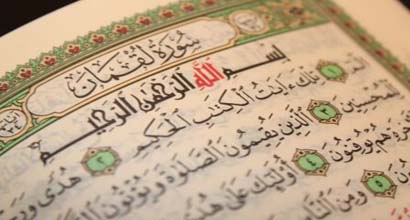 سُورَةُ لُقْمَانَ
بسم الله الرحمن الرحيم
الٓمٓ ١ تِلْكَ ءَايَٰتُ ٱلْكِتَٰبِ ٱلْحَكِيمِ ٢ هُدًى
لِّلْمُحْسِنِينَ ٣ ٱلَّذِينَ يُقِيمُونَ ٱلصَّلَوٰةَ وَيُؤْتُونَ
هُمْ يُوقِنُونَ ٤ أُو۟لَٰٓئِكَ عَلَىٰ هُدًى
٥ وَمِنَ ٱلنَّاسِ